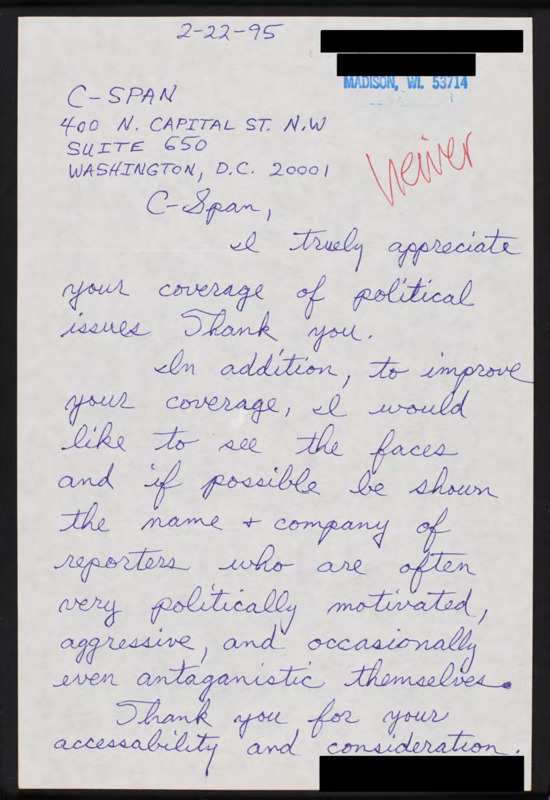 2-22-95
MADISON, WI. 53714
C-SPAN
400 N. CAPITAL ST. N.W
SUITE 650
WASHINGTON, D.C. 20001
C-Span,
I truely appreciate
your coverage of political
issues Thank you.
In addition, to improve
your coverage, I would
like to see the faces
and if possible be shown
the name + company of
reporters who are often
very politically motivated,
aggressive, and occasionally
even antaganistic themselves.
Thank you for your
accessability and consideration.